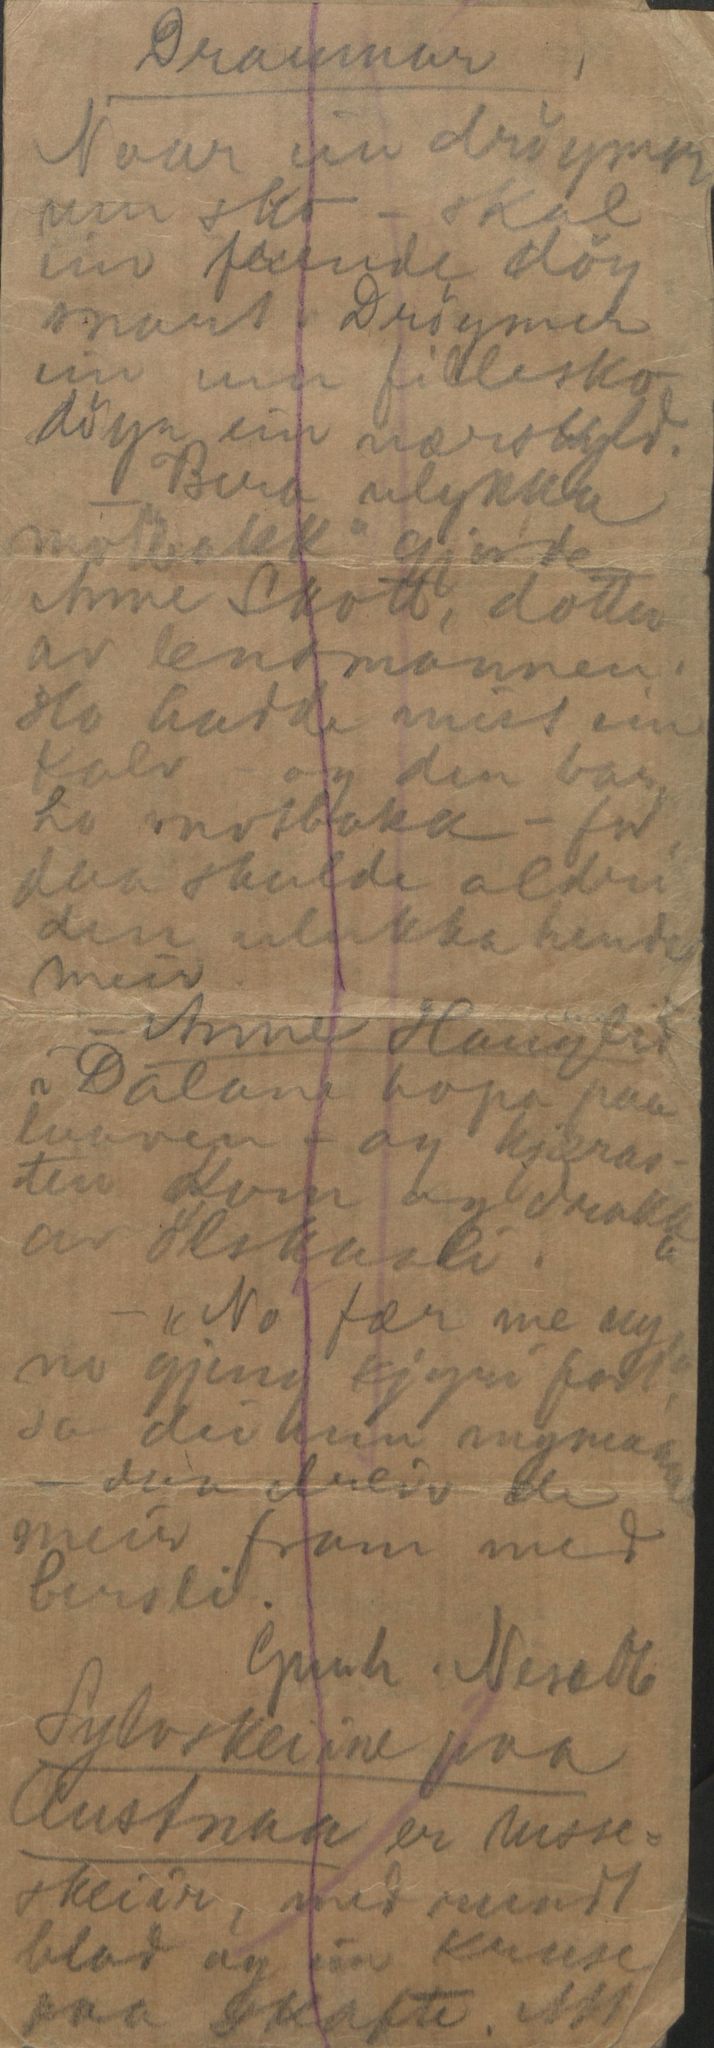 Draumar
Naar ein drøymer
um sko - skal
ein frende døy
snart. Drøymer
ein um fillesko
døyr ein nærskyld.
- "Bera ulykka
motbakk" gjorde
Anne Skott, dotter
av lensmannen.
Ho hadde mist ein
kalv - og den bar
ho motbakk - for
daa skulde aldri
den ulukka hende
meir.
- Anne Haugliд
i Dalane
laaven - og kjæras-
ten kom og drakk
av ølskaali.
- "No fær me ny,
no gjeng kjyri
sa dei um nymaane
- daa dreiv de
meir fram med
Gunh. Nesodd
Sylvskeiine paa
Austnaa er russe-
skeiir, med rundt
blad og ein kruse
paa skafte. Alt